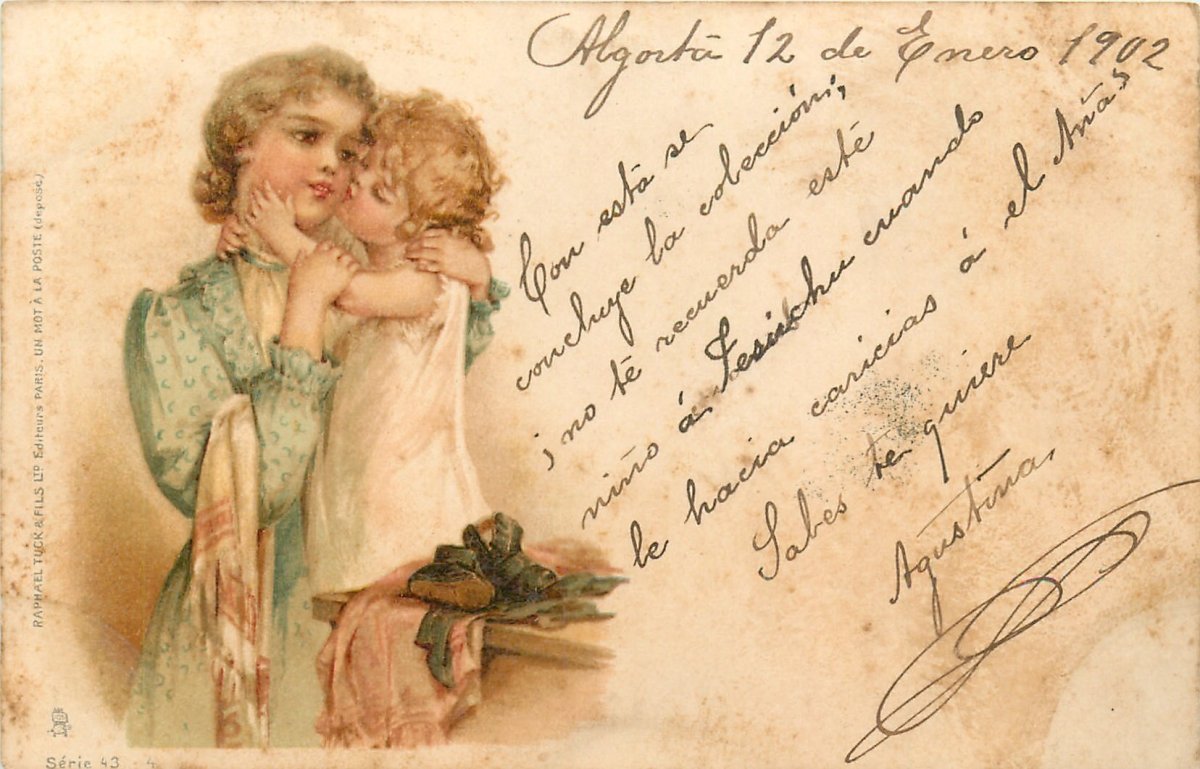 Algortá 12 de Enero 1902
Con está se
concluye la colección,
¿no té recuerda esté
niño á cuando
le hacia caricias á el Añas
Sabes te quiere
Agustina.
RAPHAEL TUCK & FILS LTD Editeurs PARIS. UN MOT A LA POSTE (déposé)
Série 43 4